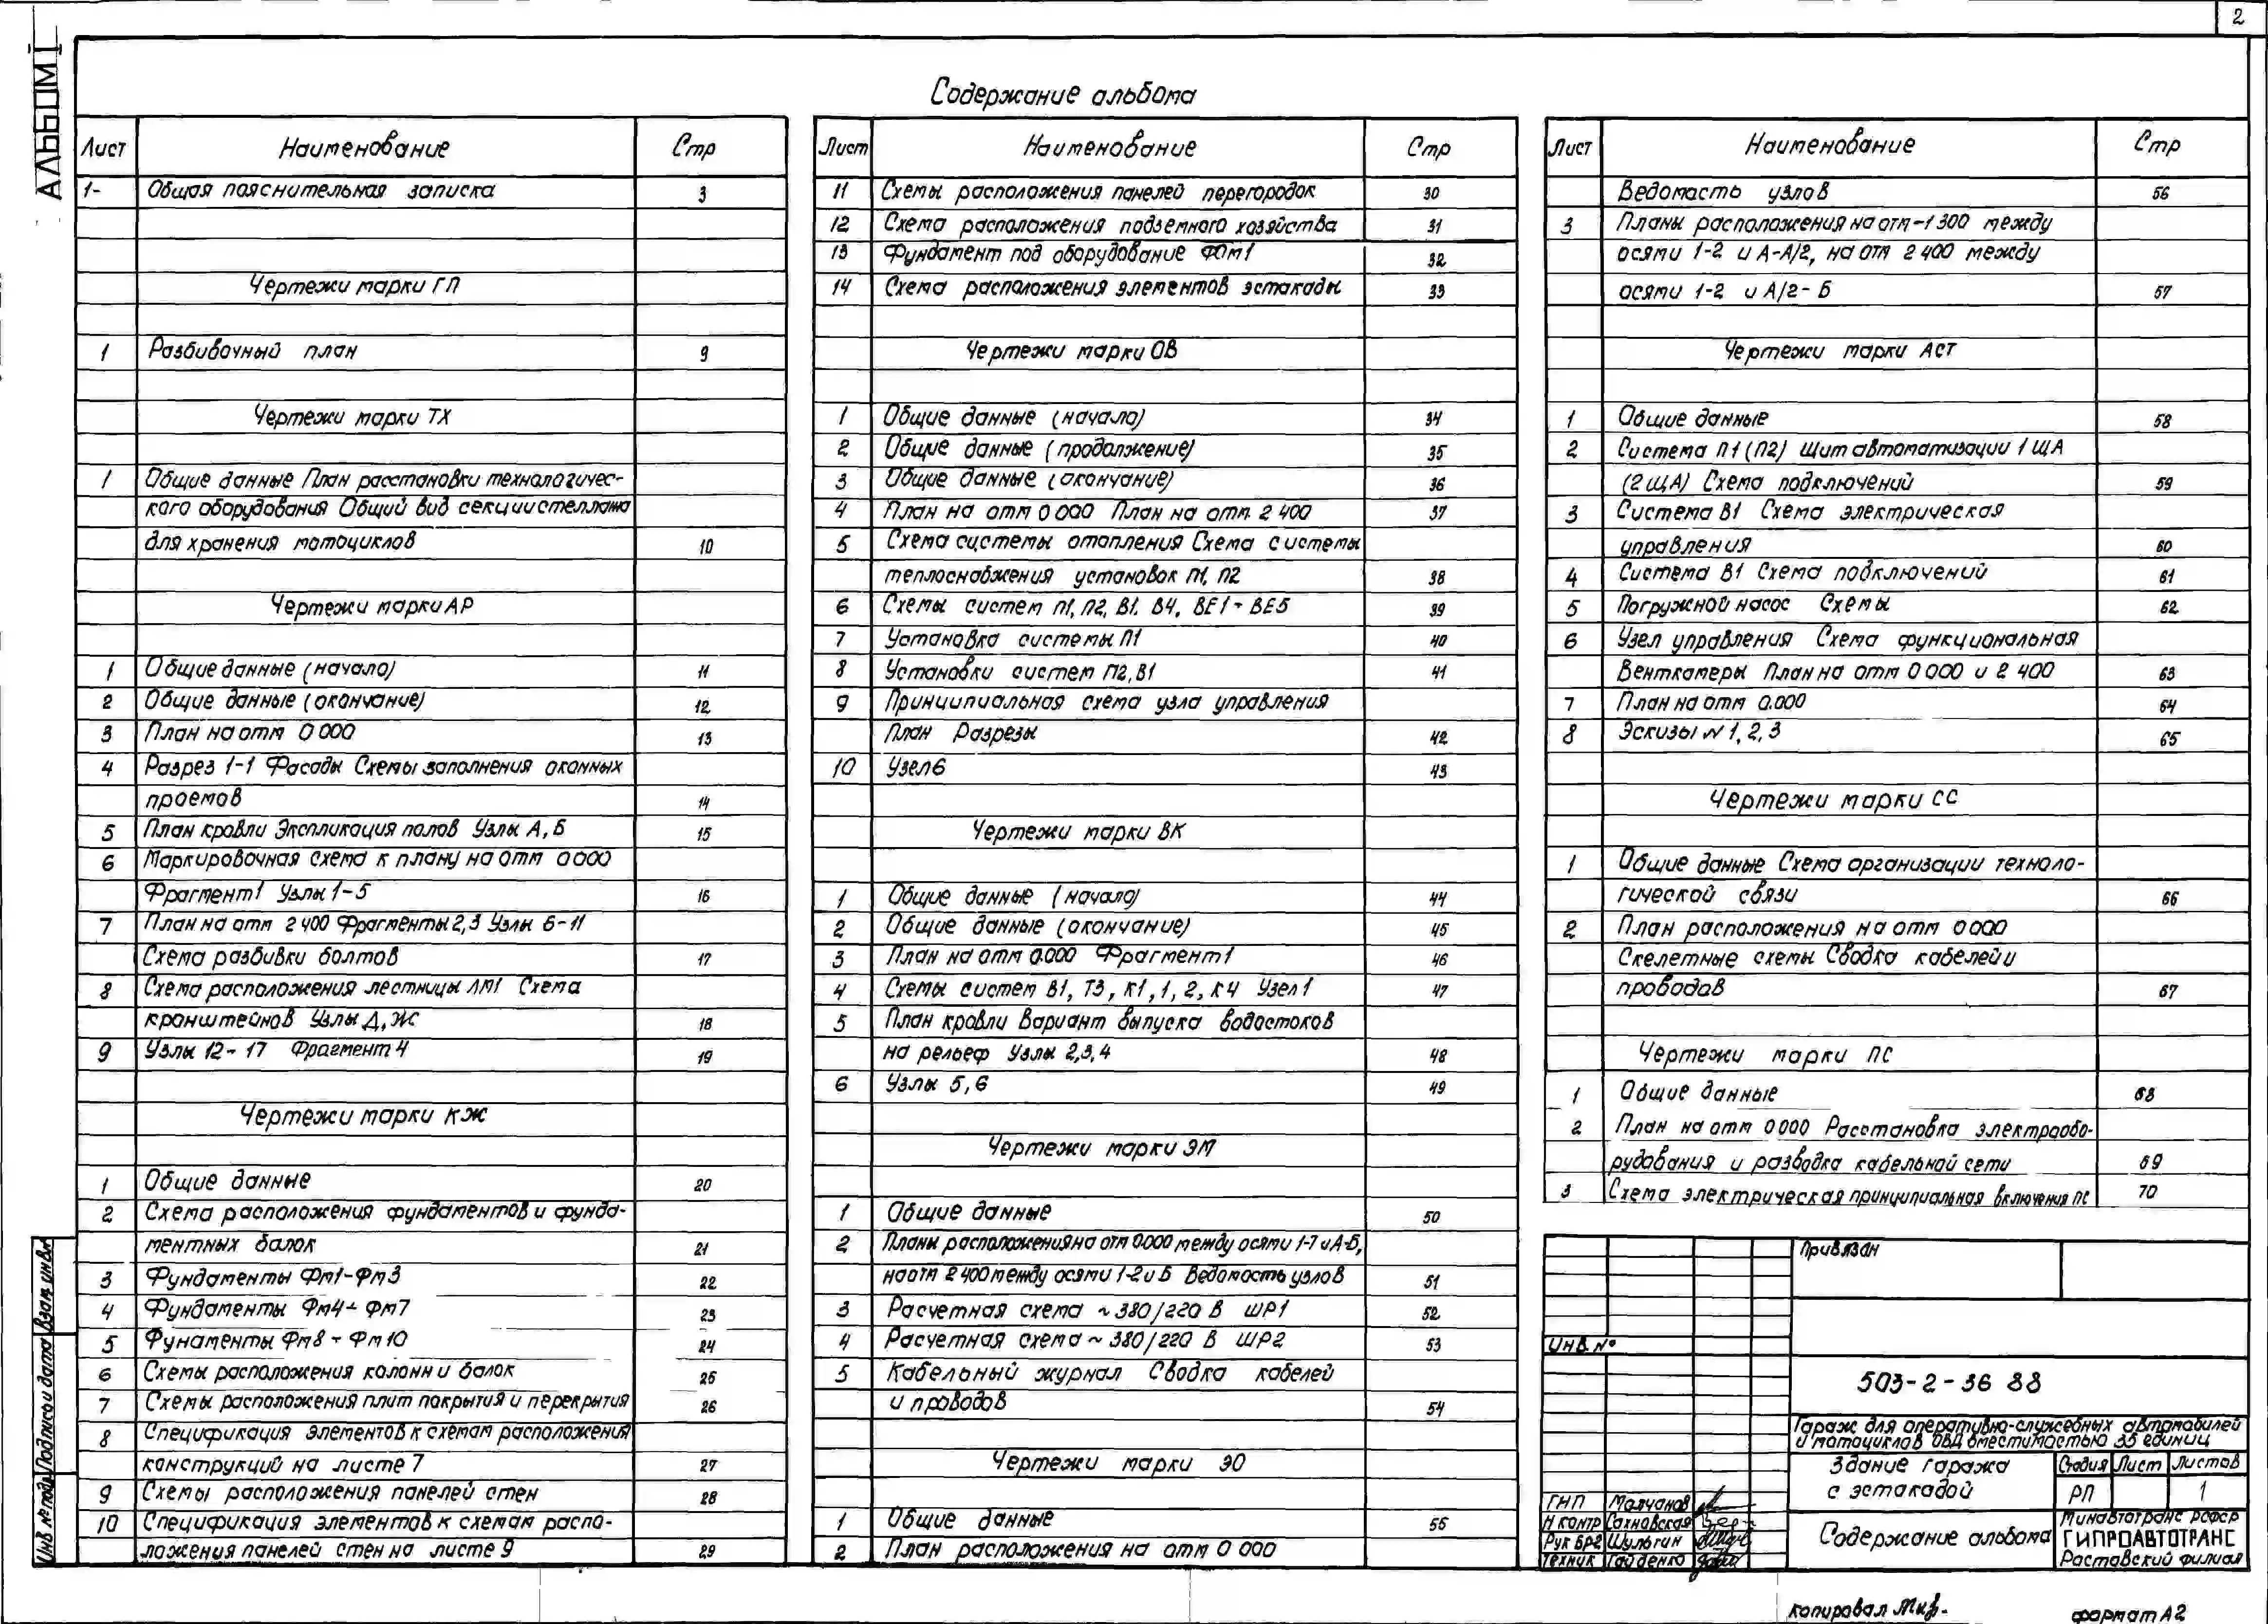 2
АЛЬБОМ I
Содержание альбома
Лист Наименование Стр
1- Общая пояснительная записка 3
Чертежи марки ГП
1 Разбивочный план 9
Чертежи марки ТХ
1 Общие данные План расстановки технологичес-
кого оборудования Общий вид секции стеллажа
для хранения мотоциклов 10
Чертежи марки АР
1 Общие данные (начало) 11
2 Общие данные (окончание) 12
3 План на отм 0 000 13
4 Разрез 1-1 Фасады Схемы заполнения оконных
проемов 14
5 План кровли Экспликация полов Узлы А, Б 15
6 Маркировочная схема к плану на отм 0 000
Фрагмент 1 Узлы 1-5 16
7 План на отм 2 400 Фрагменты 2,3 Узлы 6-11
Схема разбивки болтов 17
8 Схема расположения лестницы ЛМ1 Схема
кронштейнов Узлы Д, Ж 18
9 Узлы 12-17 Фрагмент 4 19
Чертежи марки КЖ
1 Общие данные 20
2 Схема расположения фундаментов и фунда-
ментных балок 21
3 Фундаменты Фм1-Фм3 22
4 Фундаменты Фм4-Фм7 23
5 Фунаменты Фм8-Фм10 24
6 Схемы расположения колонн и балок 25
7 Схемы расположения плит покрытия и перекрытия 26
8 Спецификация элементов к схемам расположения
конструкций на листе 7 27
9 Схемы расположения панелей стен 28
10 Спецификация элементов к схемам распо-
ложения панелей стен на листе 9 29
Лист Наименование Стр
11 Схемы расположения панелей перегородок 30
12 Схема расположения подземного хозяйства 31
13 Фундамент под оборудование ФОм1 32
14 Схема расположения элементов эстакады 33
Чертежи марки ОВ
1 Общие данные (начало) 34
2 Общие данные (продолжение) 35
3 Общие данные (окончание) 36
4 План на отм 0 000 План на отм. 2 400 37
5 Схема системы отопления Схема системы
теплоснабжения установок П1, П2 38
6 Схемы систем П1, П2, В1. В4, ВЕ1-ВЕ5 39
7 Установка системы П1 40
8 Установки систем П2, В1 41
9 Принципиальная схема узла управления
План Разрезы 42
10 Узел 6 43
Чертежи марки ВК
1 Общие данные (начало) 44
2 Общие данные (окончание) 45
3 План на отм 0.000 Фрагмент 1 46
4 Схемы систем В1, Т3, К1, 1, 2, К4 Узел 1 47
5 План кровли Вариант выпуска водостоков
на рельеф Узлы 2,3,4 48
6 Узлы 5, 6 49
Чертежи марки ЭМ
1 Общие данные 50
2 Планы расположения на отм 0.000 между осями 1-7 и А-Б,
на отм 2 400 между осями 1-2 и Б Ведомость узлов 51
3 Расчетная схема ~ 380/220 В ШР1 52
4 Расчетная схема ~ 380/220 В ШР2 53
5 Кабельный журнал Сводка кабелей
и проводов 54
Чертежи марки ЭО
1 Общие данные 55
2 План расположения на отм 0 000
Лист Наименование Стр
Ведомость узлов 56
3 Планы расположения на отм -1 300 между
осями 1-2 и А-А/2, на отм 2 400 между
осями 1-2 и А/2-Б 57
Чертежи марки АСТ
1 Общие данные 58
2 Система П1 (П2) Щит автоматизации 1 ЩА
(2 ЩА) Схема подключений 59
3 Система В1 Схема электрическая
управления 60
4 Система В1 Схема подключений 61
5 Погружной насос Схемы 62
6 Узел управления Схема функциональная
Венткамеры План на отм 0 000 и 2 400 63
7 План на отм 0.000 64
8 Эскизы N 1, 2, 3 65
Чертежи марки СС
1 Общие данные Схема организации техноло-
гической связи 66
2 План расположения на отм 0 000
Скелетные схемы Сводка кабелей и
проводов 67
Чертежи марки ПС
1 Общие данные 68
2 План на отм 0 000 Расстановка электрообо-
рудования и разводка кабельной сети 69
3 Схема электрическая принципиальная включения ПС 70
Привязан
Инв. №
503-2-36 88
Гараж для оперативно-служебных автомобилей
и мотоциклов ОВД вместимостью 35 единиц
Здание гаража
с эстакадой
Стадия Лист Листов
РП 1
ГНП Молчанов
Н контр Сахновская
Рук бр2 Шульгин
Техник Гайденко
Содержание альбома
Минавтотранс РСФСР
ГИПРОАВТОТРАНС
Ростовский филиал
Инв № подл Подпись и дата Взам инв №
копировал
формат А2